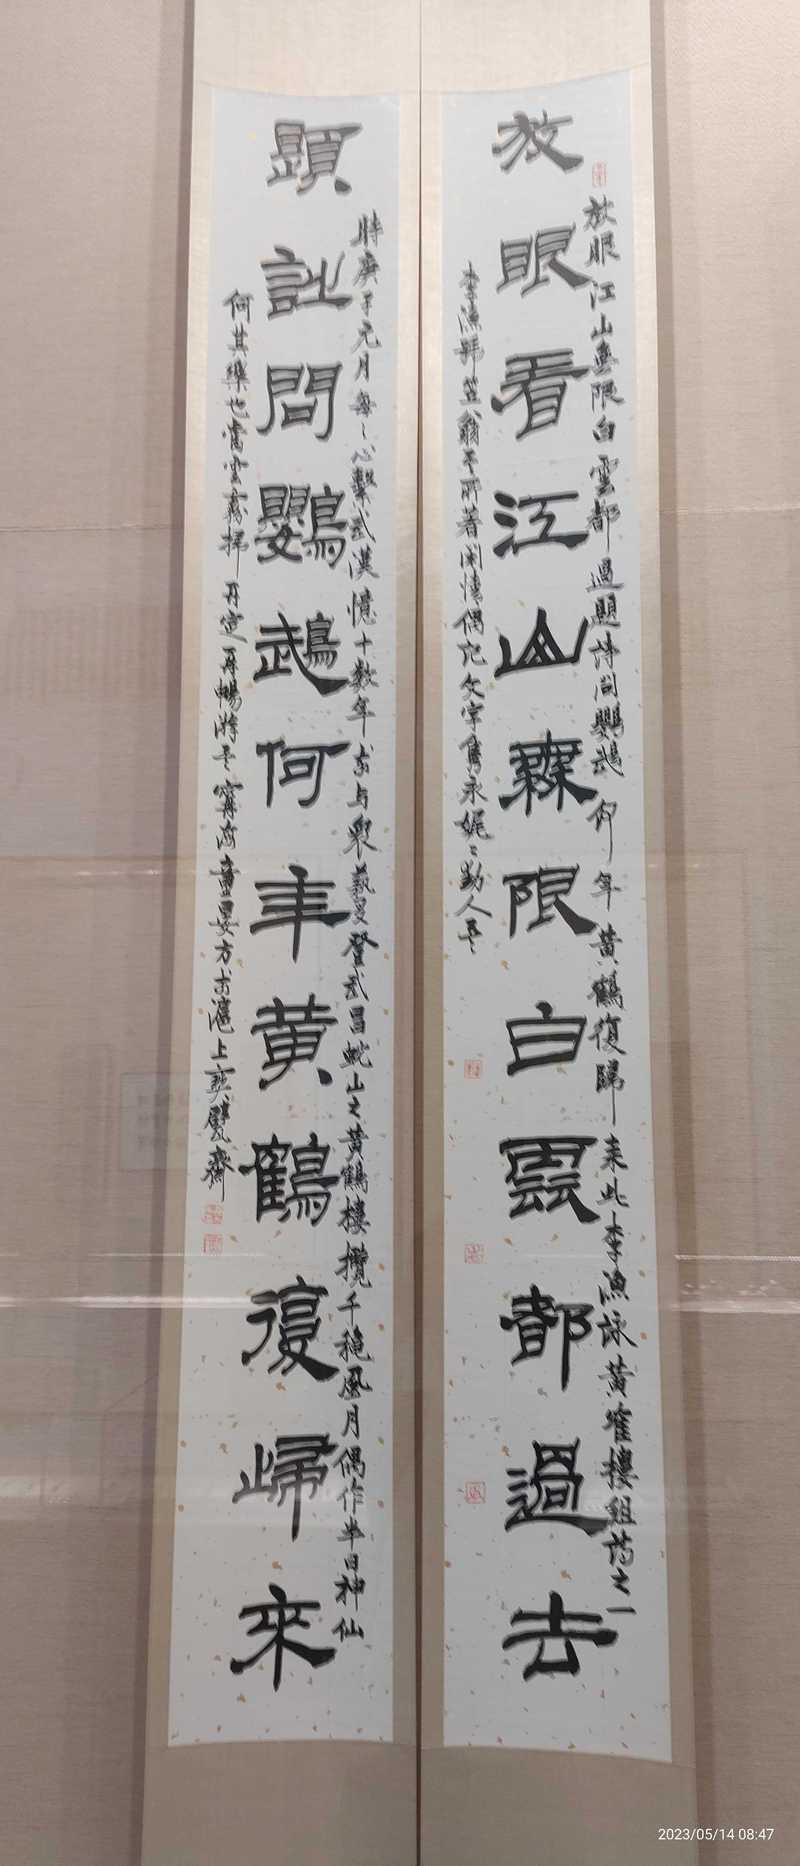 放眼看江山無限白雲都過去
放眼江山無限白雲都過題詩問鸚鵡何年黃鶴復歸來此李漁詠黃鶴樓組詩之一
李漁號笠翁其所著閑情偶記文字雋永娓〻動人
題詩問鸚鵡何年黃鶴復歸來
時庚子元月每〻心繫武漢憶十數年前與眾藝友登武昌蛇山之黃鶴樓攬千穐風月偶作半日神仙
何其樂也當雲霧掃再定再暢游
童晏方於滬上
2023/05/14 08:47